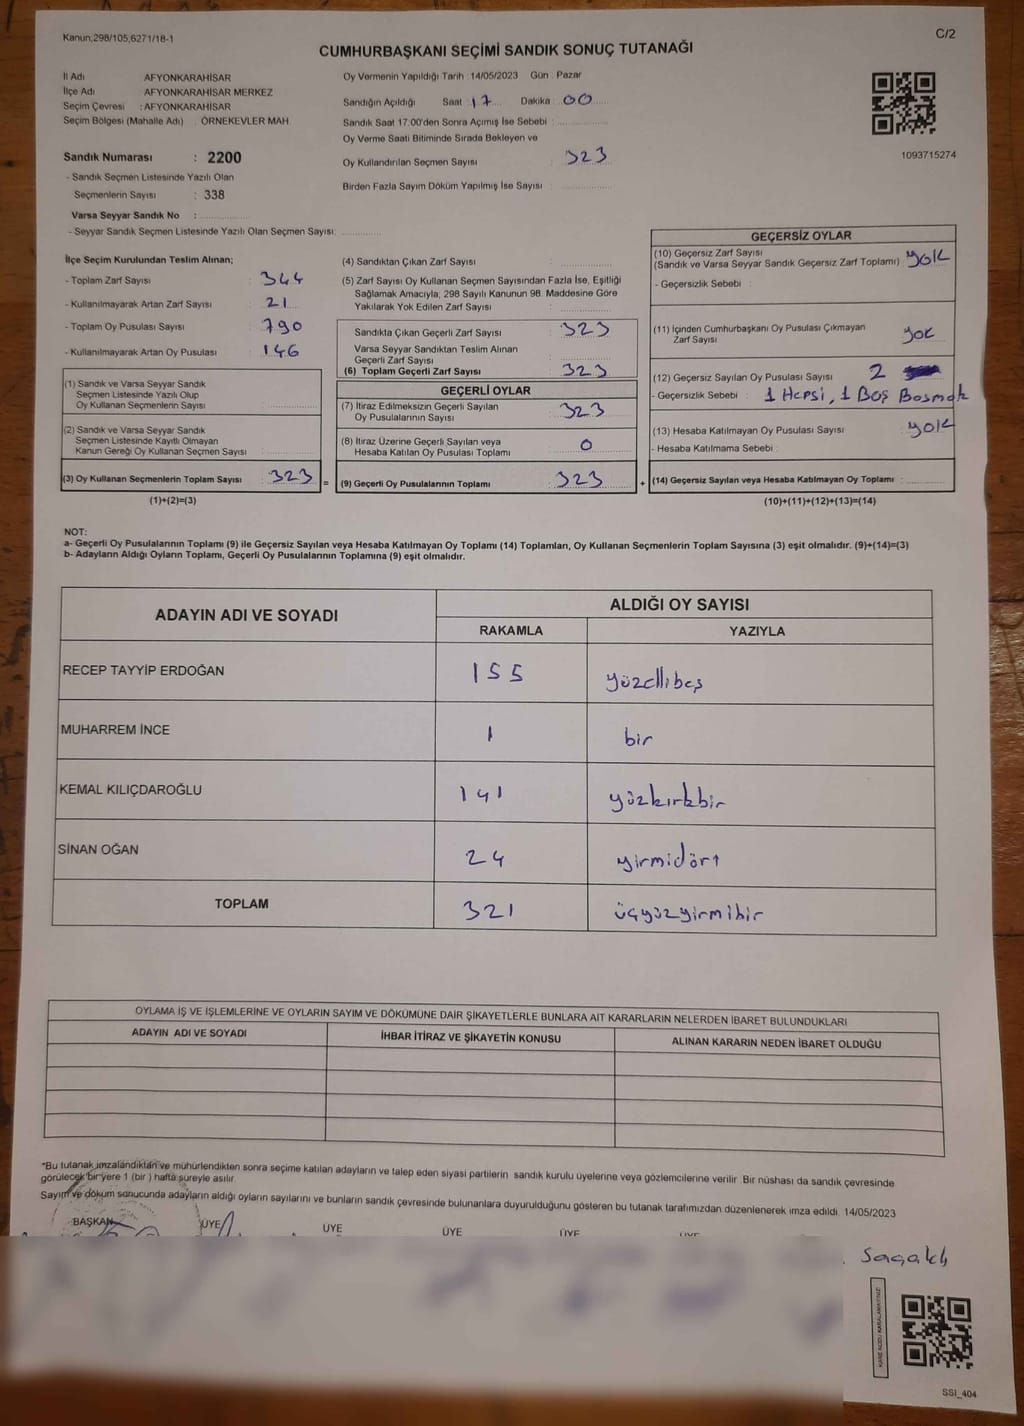 Kanun;298/105,6271/18-1
C/2
CUMHURBAŞKANI SEÇİMİ SANDIK SONUÇ TUTANAĞI
İl Adı AFYONKARAHİSAR
İlçe Adı AFYONKARAHİSAR MERKEZ
Seçim Çevresi : AFYONKARAHİSAR
Seçim Bölgesi (Mahalle Adı) : ÖRNEKEVLER MAH.
Sandık Numarası : 2200
- Sandık Seçmen Listesinde Yazılı Olan
Seçmenlerin Sayısı : 338
Varsa Seyyar Sandık No :
- Seyyar Sandık Seçmen Listesinde Yazılı Olan Seçmen Sayısı:
Oy Vermenin Yapıldığı Tarih : 14/05/2023 Gün : Pazar
Sandığın Açıldığı Saat : 17 Dakika : 00
Sandık Saat 17.00'den Sonra Açımış İse Sebebi :
Oy Verme Saati Bitiminde Sırada Bekleyen ve
Oy Kullandırılan Seçmen Sayısı : 323
Birden Fazla Sayım Döküm Yapılmış İse Sayısı :
1093715274
İlçe Seçim Kurulundan Teslim Alınan;
- Toplam Zarf Sayısı : 344
- Kullanılmayarak Artan Zarf Sayısı : 21
- Toplam Oy Pusulası Sayısı : 790
- Kullanılmayarak Artan Oy Pusulası : 146
(1) Sandık ve Varsa Seyyar Sandık
Seçmen Listesinde Yazılı Olup
Oy Kullanan Seçmenlerin Sayısı :
(2) Sandık ve Varsa Seyyar Sandık
Seçmen Listesinde Kayıtlı Olmayan
Kanun Gereği Oy Kullanan Seçmen Sayısı :
(3) Oy Kullanan Seçmenlerin Toplam Sayısı : 323
(1)+(2)=(3)
(4) Sandıktan Çıkan Zarf Sayısı :
(5) Zarf Sayısı Oy Kullanan Seçmen Sayısından Fazla İse, Eşitliği
Sağlamak Amacıyla, 298 Sayılı Kanunun 98. Maddesine Göre
Yakılarak Yok Edilen Zarf Sayısı :
Sandıkta Çıkan Geçerli Zarf Sayısı : 323
Varsa Seyyar Sandıktan Teslim Alınan
Geçerli Zarf Sayısı :
(6) Toplam Geçerli Zarf Sayısı : 323
GEÇERLİ OYLAR
(7) İtiraz Edilmeksizin Geçerli Sayılan
Oy Pusulalarının Sayısı : 323
(8) İtiraz Üzerine Geçerli Sayılan veya
Hesaba Katılan Oy Pusulası Toplamı : 0
= (9) Geçerli Oy Pusulalarının Toplamı : 323 +
GEÇERSİZ OYLAR
(10) Geçersiz Zarf Sayısı
(Sandık ve Varsa Seyyar Sandık Geçersiz Zarf Toplamı) : yok
- Geçersizlik Sebebi :
(11) İçinden Cumhurbaşkanı Oy Pusulası Çıkmayan
Zarf Sayısı : yok
(12) Geçersiz Sayılan Oy Pusulası Sayısı : 2
- Geçersizlik Sebebi : 1 Hepsi, 1 Boş Basmak
(13) Hesaba Katılmayan Oy Pusulası Sayısı : yok
- Hesaba Katılmama Sebebi :
(14) Geçersiz Sayılan veya Hesaba Katılmayan Oy Toplamı :
(10)+(11)+(12)+(13)=(14)
NOT:
a- Geçerli Oy Pusulalarının Toplamı (9) ile Geçersiz Sayılan veya Hesaba Katılmayan Oy Toplamı (14) Toplamları, Oy Kullanan Seçmenlerin Toplam Sayısına (3) eşit olmalıdır. (9)+(14)=(3)
b- Adayların Aldığı Oyların Toplamı, Geçerli Oy Pusulalarının Toplamına (9) eşit olmalıdır.
ADAYIN ADI VE SOYADI ALDIĞI OY SAYISI
RAKAMLA YAZIYLA
RECEP TAYYİP ERDOĞAN 155 yüzellibeş
MUHARREM İNCE 1 bir
KEMAL KILIÇDAROĞLU 141 yüzkırkbir
SİNAN OĞAN 24 yirmidört
TOPLAM 321 üçyüzyirmibir
OYLAMA İŞ VE İŞLEMLERİNE VE OYLARIN SAYIM VE DÖKÜMÜNE DAİR ŞİKAYETLERLE BUNLARA AİT KARARLARIN NELERDEN İBARET BULUNDUKLARI
ADAYIN ADI VE SOYADI İHBAR İTİRAZ VE ŞİKAYETİN KONUSU ALINAN KARARIN NEDEN İBARET OLDUĞU
*Bu tutanak imzalandıktan ve mühürlendikten sonra seçime katılan adayların ve talep eden siyasi partilerin sandık kurulu üyelerine veya gözlemcilerine verilir. Bir nüshası da sandık çevresinde
görülecek bir yere 1 (bir ) hafta süreyle asılır.
Sayım ve döküm sonucunda adayların aldığı oyların sayılarını ve bunların sandık çevresinde bulunanlara duyurulduğunu gösteren bu tutanak tarafımızdan düzenlenerek imza edildi. 14/05/2023
BAŞKAN ÜYE ÜYE ÜYE ÜYE
SSI_404